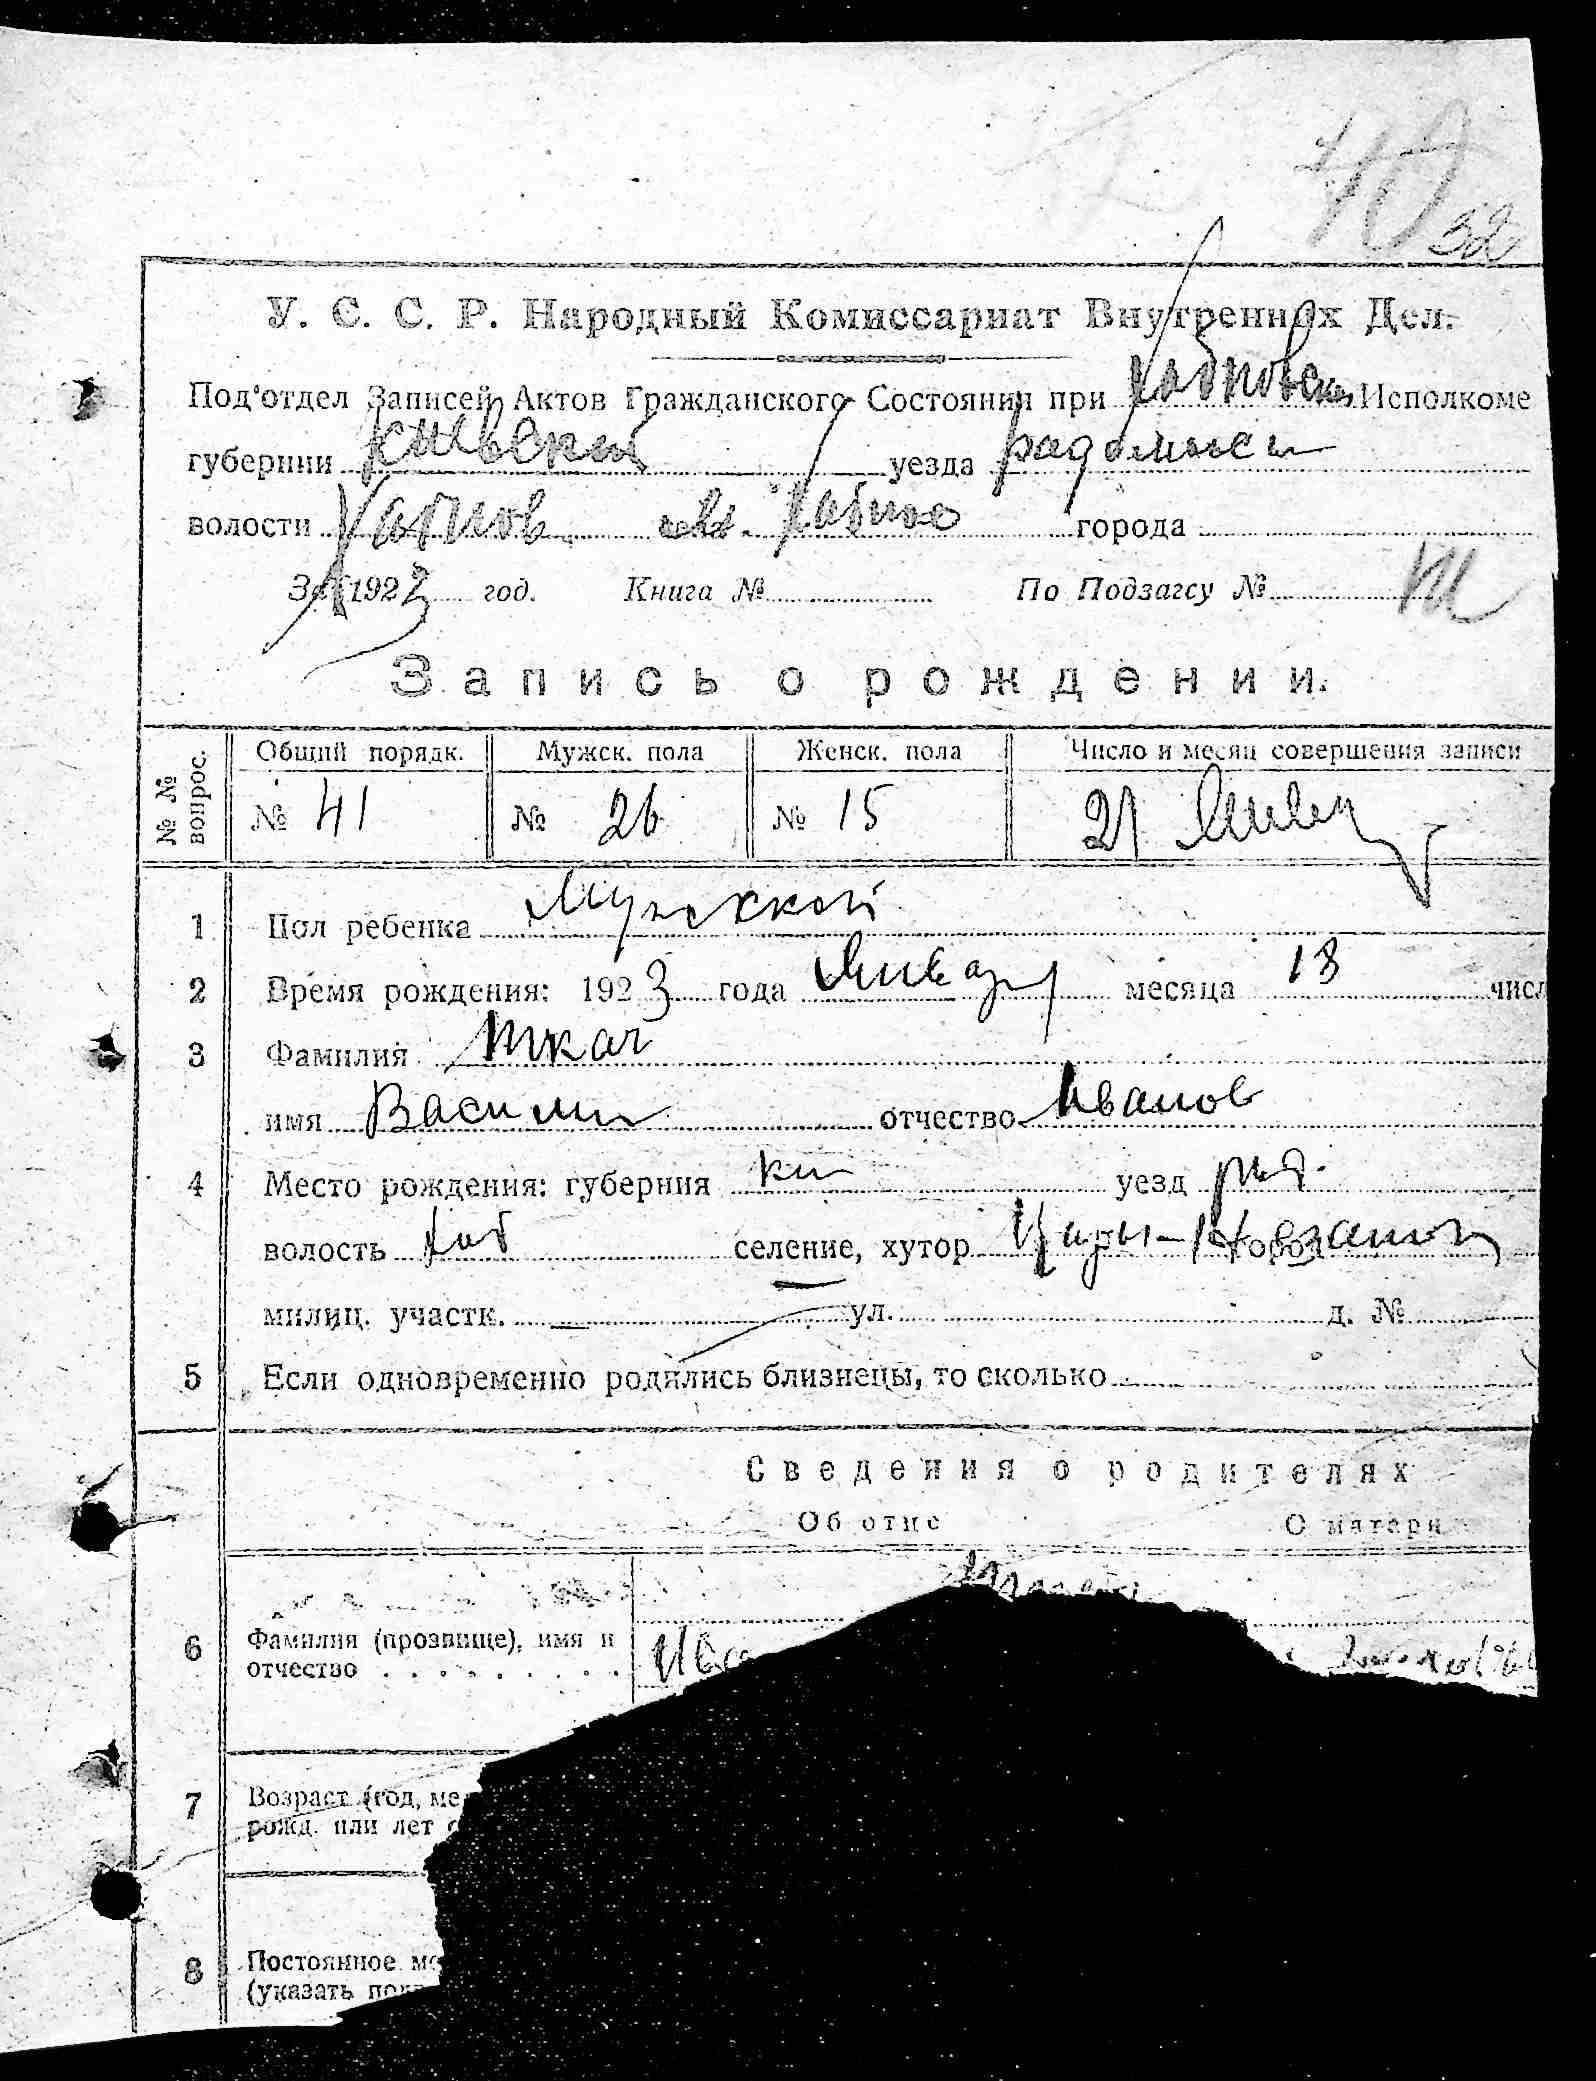 40
32
У. С. С. Р. Народный Комиссариат Внутренних Дел.
Под'отдел Записей Актов Гражданского Состояния при Хабновском Исполкоме
губернии Киевский уезда Радомысл
волости Хабнов м. Хабно города
За 1923 год. Книга № По Подзагсу №
Запись о рождении.
№ № вопрос. Общий порядк. Мужск. пола Женск. пола Число и месяц совершения записи
№ 41 № 26 № 15 21 Января
1 Пол ребенка Мужской
2 Время рождения: 1923 года Января месяца 18 числ
3 Фамилия Ткач
имя Василий отчество Иванов
4 Место рождения: губерния Ки уезд Рад.
волость Хаб селение, хутор
милиц. участк. — ул. д. №
5 Если одновременно родились близнецы, то сколько
Сведения о родителях
Об отце О матери
6 Фамилия (прозвище), имя и
отчество Ива
7 Возраст (год, ме
рожд. или лет с
8 Постоянное ме
(указать по